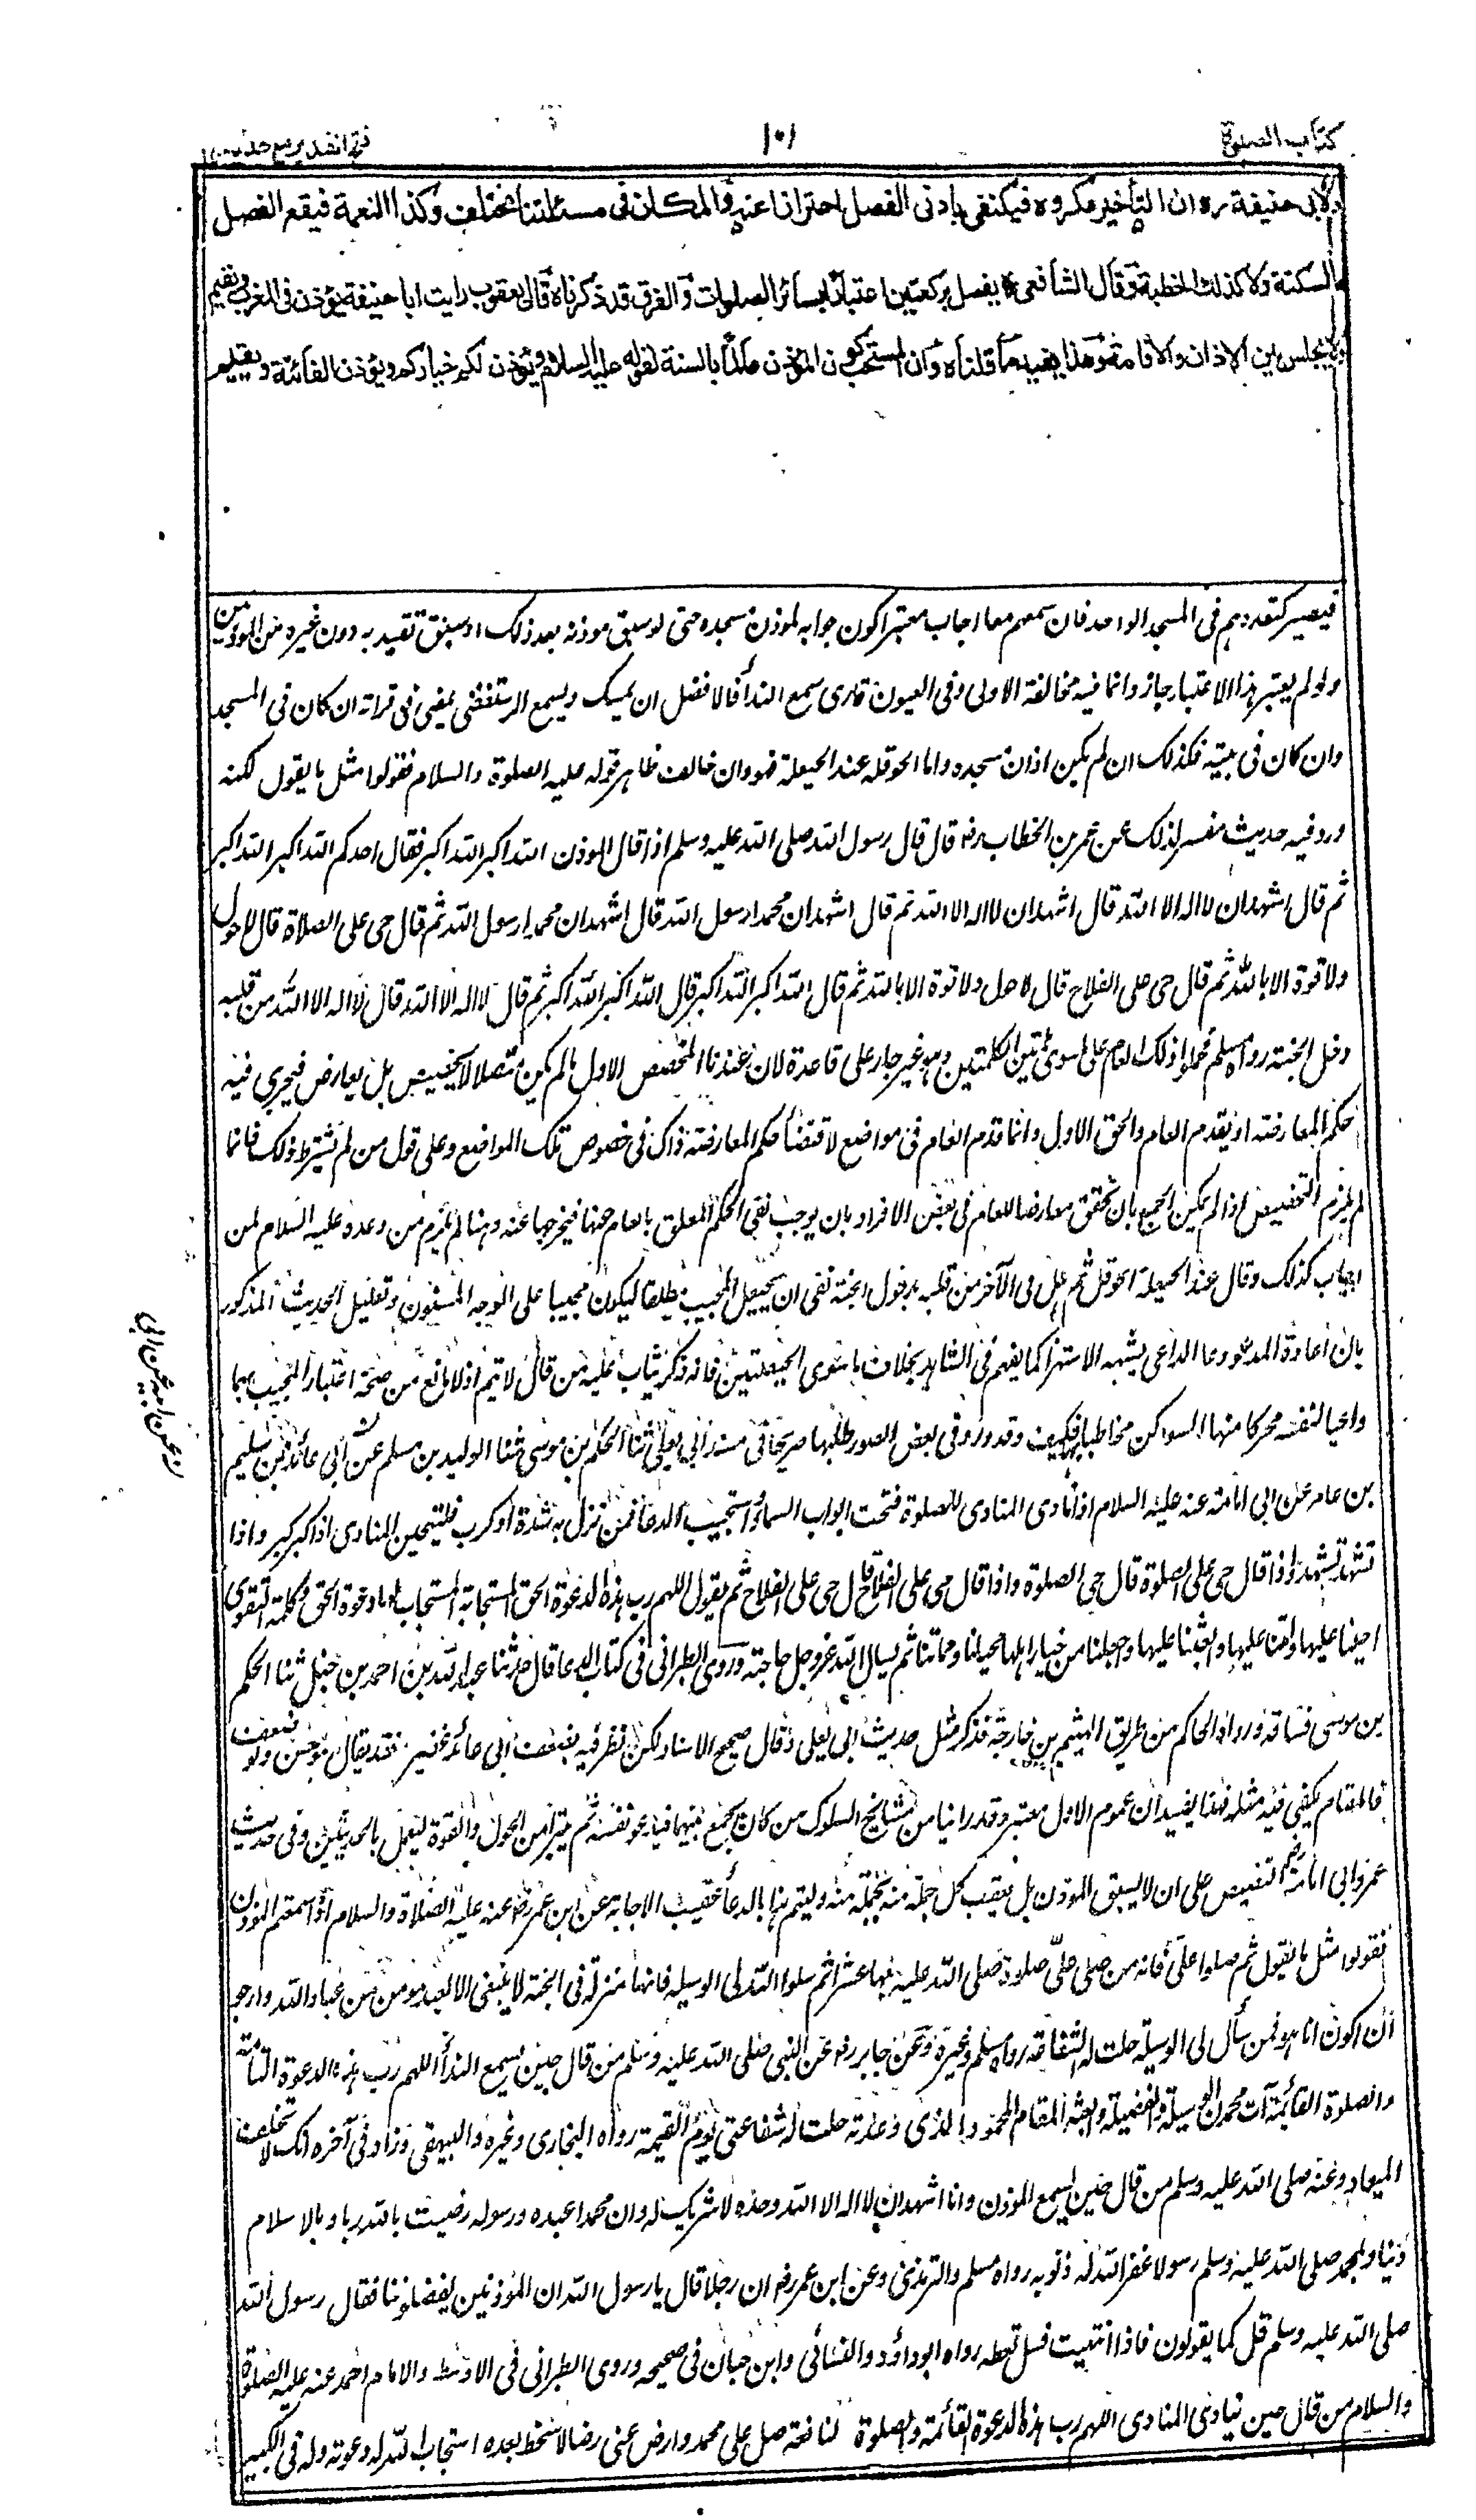 كتاب الصلوة
١٠١
فتح القدير مع هداية
ولابى حنيفة ره ان التأخير مكروه فيكتفى بادنى الفصل احترازا عنه والمكان فى مسئلتنا مختلف وكذا النغمة فيقع الفصل
بالسكتة ولا كذلك الخطبة وقال الشافعى يفصل بركعتين اعتبارا بسائر الصلوات والفرق قد ذكرناه قال يعقوب رايت ابا حنيفة يؤذن فى المغرب ويقيم
ولا يجلس بين الاذان والاقامة وهذا يفيد ما قلناه وان المستحب كون المؤذن عالما بالسنة لقوله عليه السلام ويؤذن لكم خياركم ويؤذن للفائتة ويقيم
فيصير كتعددهم فى المسجد الواحد فان سمعهم معا اجاب معتبرا كون جوابه لموذن مسجده حتى لو سبق موذنه بعد ذلك او سبق تقيد به دون غيره من الموذنين
ولو لم يعتبر هذا الاعتبار جاز وانما فيه مخالفة الاولى وفى العيون قارى سمع الندأ فالافضل ان يمسك ويسمع الرستغفنى يمضى فى قراته ان كان فى المسجد
وان كان فى بيته فكذلك ان لم يكن اذان مسجده واما الحوقلة عند الحيعلة فهو وان خالف ظاهر قوله عليه الصلوة والسلام فقولوا مثل ما يقول لكنه
ورد فيه حديث مفسر لذلك عن عمر بن الخطاب رض قال قال رسول الله صلى الله عليه وسلم اذا قال الموذن الله اكبر الله اكبر فقال احدكم الله اكبر الله اكبر
ثم قال اشهد ان لا اله الا الله قال اشهد ان لا اله الا الله ثم قال اشهد ان محمدا رسول الله قال اشهد ان محمدا رسول الله ثم قال حى على الصلاة قال لا حول
ولا قوة الا بالله ثم قال حى على الفلاح قال لا حول ولا قوة الا بالله ثم قال الله اكبر الله اكبر قال الله اكبر الله اكبر ثم قال لا اله الا الله قال لا اله الا الله من قلبه
دخل الجنة رواه مسلم فحملوا ذلك العام على ما سوى هاتين الكلمتين وهو غير جار على قاعدة لان عندنا المخصص الاول ما لم يكن متصلا لا يخصص بل يعارض فيجرى فيه
حكم المعارضة او يقدم العام والحق الاول وانما قدم العام فى مواضع لاقتضأ حكم المعارضة ذاك فى خصوص تلك المواضع وعلى قول من لم يشترط ذلك فانما
لم يلزم التخصيص اذا لم يمكن الجمع بان تحقق معارضا للعام فى بعض الافراد بان يوجب نفى الحكم المعلق بالعام عنها فيخرجها عنه وهنا لم يلزم من وعده عليه السلام لمن
اجاب كذلك وقال عند الحيعلة الحوقلة ثم هلل فى الآخر من قلبه بدخول الجنة نفى ان يحيعل المجيب مطلقا ليكون مجيبا على الوجه المسنون وتعليل الحديث المذكور
بان اعادة المدعو دعا الداعى يشبه الاستهزا كما يفهم فى الشاهد بخلاف ما سوى الحيعلتين فانه ذكر يثاب عليه من قاله لا يتم اذ لا مانع من صحة اعتبار المجيب بهما
داعيا لنفسه محركا منها السواكن مخاطبا لها فكيف وقد ورد فى بعض الصور طلبها صريحا فى مسند ابى يعلى ثنا الحكم بن موسى ثنا الوليد بن مسلم عن ابى عائذ سليم
بن عامر عن ابى امامة عنه عليه السلام اذا نادى المنادى للصلوة فتحت ابواب السمأ واستجيب الدعا فمن نزل به شدة او كرب فليتحين المنادى اذا كبر كبر واذا
تشهد تشهد واذا قال حى على الصلوة قال حى على الصلوة واذا قال حى على الفلاح قال حى على الفلاح ثم يقول اللهم رب هذه الدعوة الحق المستجابة المستجاب لها دعوة الحق وكلمة التقوى
احينا عليها وامتنا عليها وابعثنا عليها واجعلنا من خيار اهلها محيانا ومماتنا ثم يسال الله عز وجل حاجته وروى الطبرانى فى كتاب الدعا قال حدثنا عبد الله بن احمد بن حنبل ثنا الحكم
بن موسى فساقه ورواه الحاكم من طريق الهيثم بن خارجة فذكر مثل حديث ابى يعلى وقال صحيح الاسناد لكن نظر فيه بضعف ابى عائذ عفير فقد يقال هو حسن ولو ضعف
فالمقام يكفى فيه مثله فهذا يفيد ان عموم الاول معتبر وقد راينا من مشايخ السلوك من كان يجمع بينهما فيدعو نفسه ثم يتبرأ من الحول والقوة ليعمل بالحديثين وفى حديث
عمر وابى امامة رض التنصيص على ان لا يسبق الموذن بل يعقب كل جملة منه بجملة منه وليتم هذا بالدعأ عقيب الاجابة عن ابن عمر رض عنه عليه الصلاة والسلام اذا سمعتم الموذن
فقولوا مثل ما يقول ثم صلوا على فانه من صلى على صلوة صلى الله عليه بها عشرا ثم سلوا الله لى الوسيلة فانها منزلة فى الجنة لا ينبغى الا لعبد مومن من عباد الله وارجو
ان اكون انا هو فمن سأل لى الوسيلة حلت له الشفاعة رواه مسلم وغيره وعن جابر رض عن النبى صلى الله عليه وسلم من قال حين يسمع الندأ اللهم رب هذه الدعوة التامة
والصلوة القائمة آت محمدا الوسيلة والفضيلة وابعثه المقام المحمود الذى وعدته حلت له شفاعتى يوم القيمة رواه البخارى وغيره والبيهقى وزاد فى آخره انك لا تخلف
الميعاد وعنه صلى الله عليه وسلم من قال حين يسمع الموذن وانا اشهد ان لا اله الا الله وحده لا شريك له وان محمدا عبده ورسوله رضيت بالله ربا وبالاسلام
دينا وبمحمد صلى الله عليه وسلم رسولا غفر الله له ذنوبه رواه مسلم والترمذى وعن ابن عمر رض ان رجلا قال يا رسول الله ان الموذنين يفضلوننا فقال رسول الله
صلى الله عليه وسلم قل كما يقولون فاذا انتهيت فسل تعطه رواه ابو داؤد والنسائى وابن حبان فى صحيحه وروى الطبرانى فى الاوسط والامام احمد عنه عليه الصلوة
والسلام من قال حين ينادى المنادى اللهم رب هذه الدعوة القائمة والصلوة النافعة صل على محمد وارض عنى رضا لا سخط بعده استجاب الله له دعوته وله فى الكبير